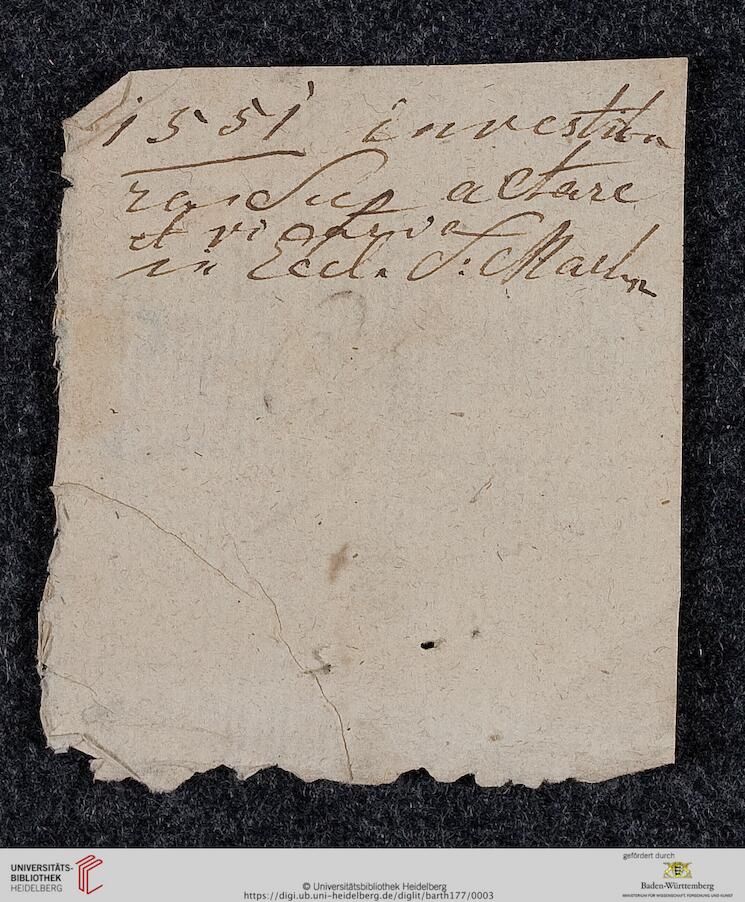 1551 investitu
ra Sup altare
et vicaria
in Eccl. S: Martin
UNIVERSITÄTS-
BIBLIOTHEK
HEIDELBERG
© Universitätsbibliothek Heidelberg
https://digi.ub.uni-heidelberg.de/diglit/barth177/0003
gefördert durch
Baden-Württemberg
MINISTERIUM FÜR WISSENSCHAFT, FORSCHUNG UND KUNST